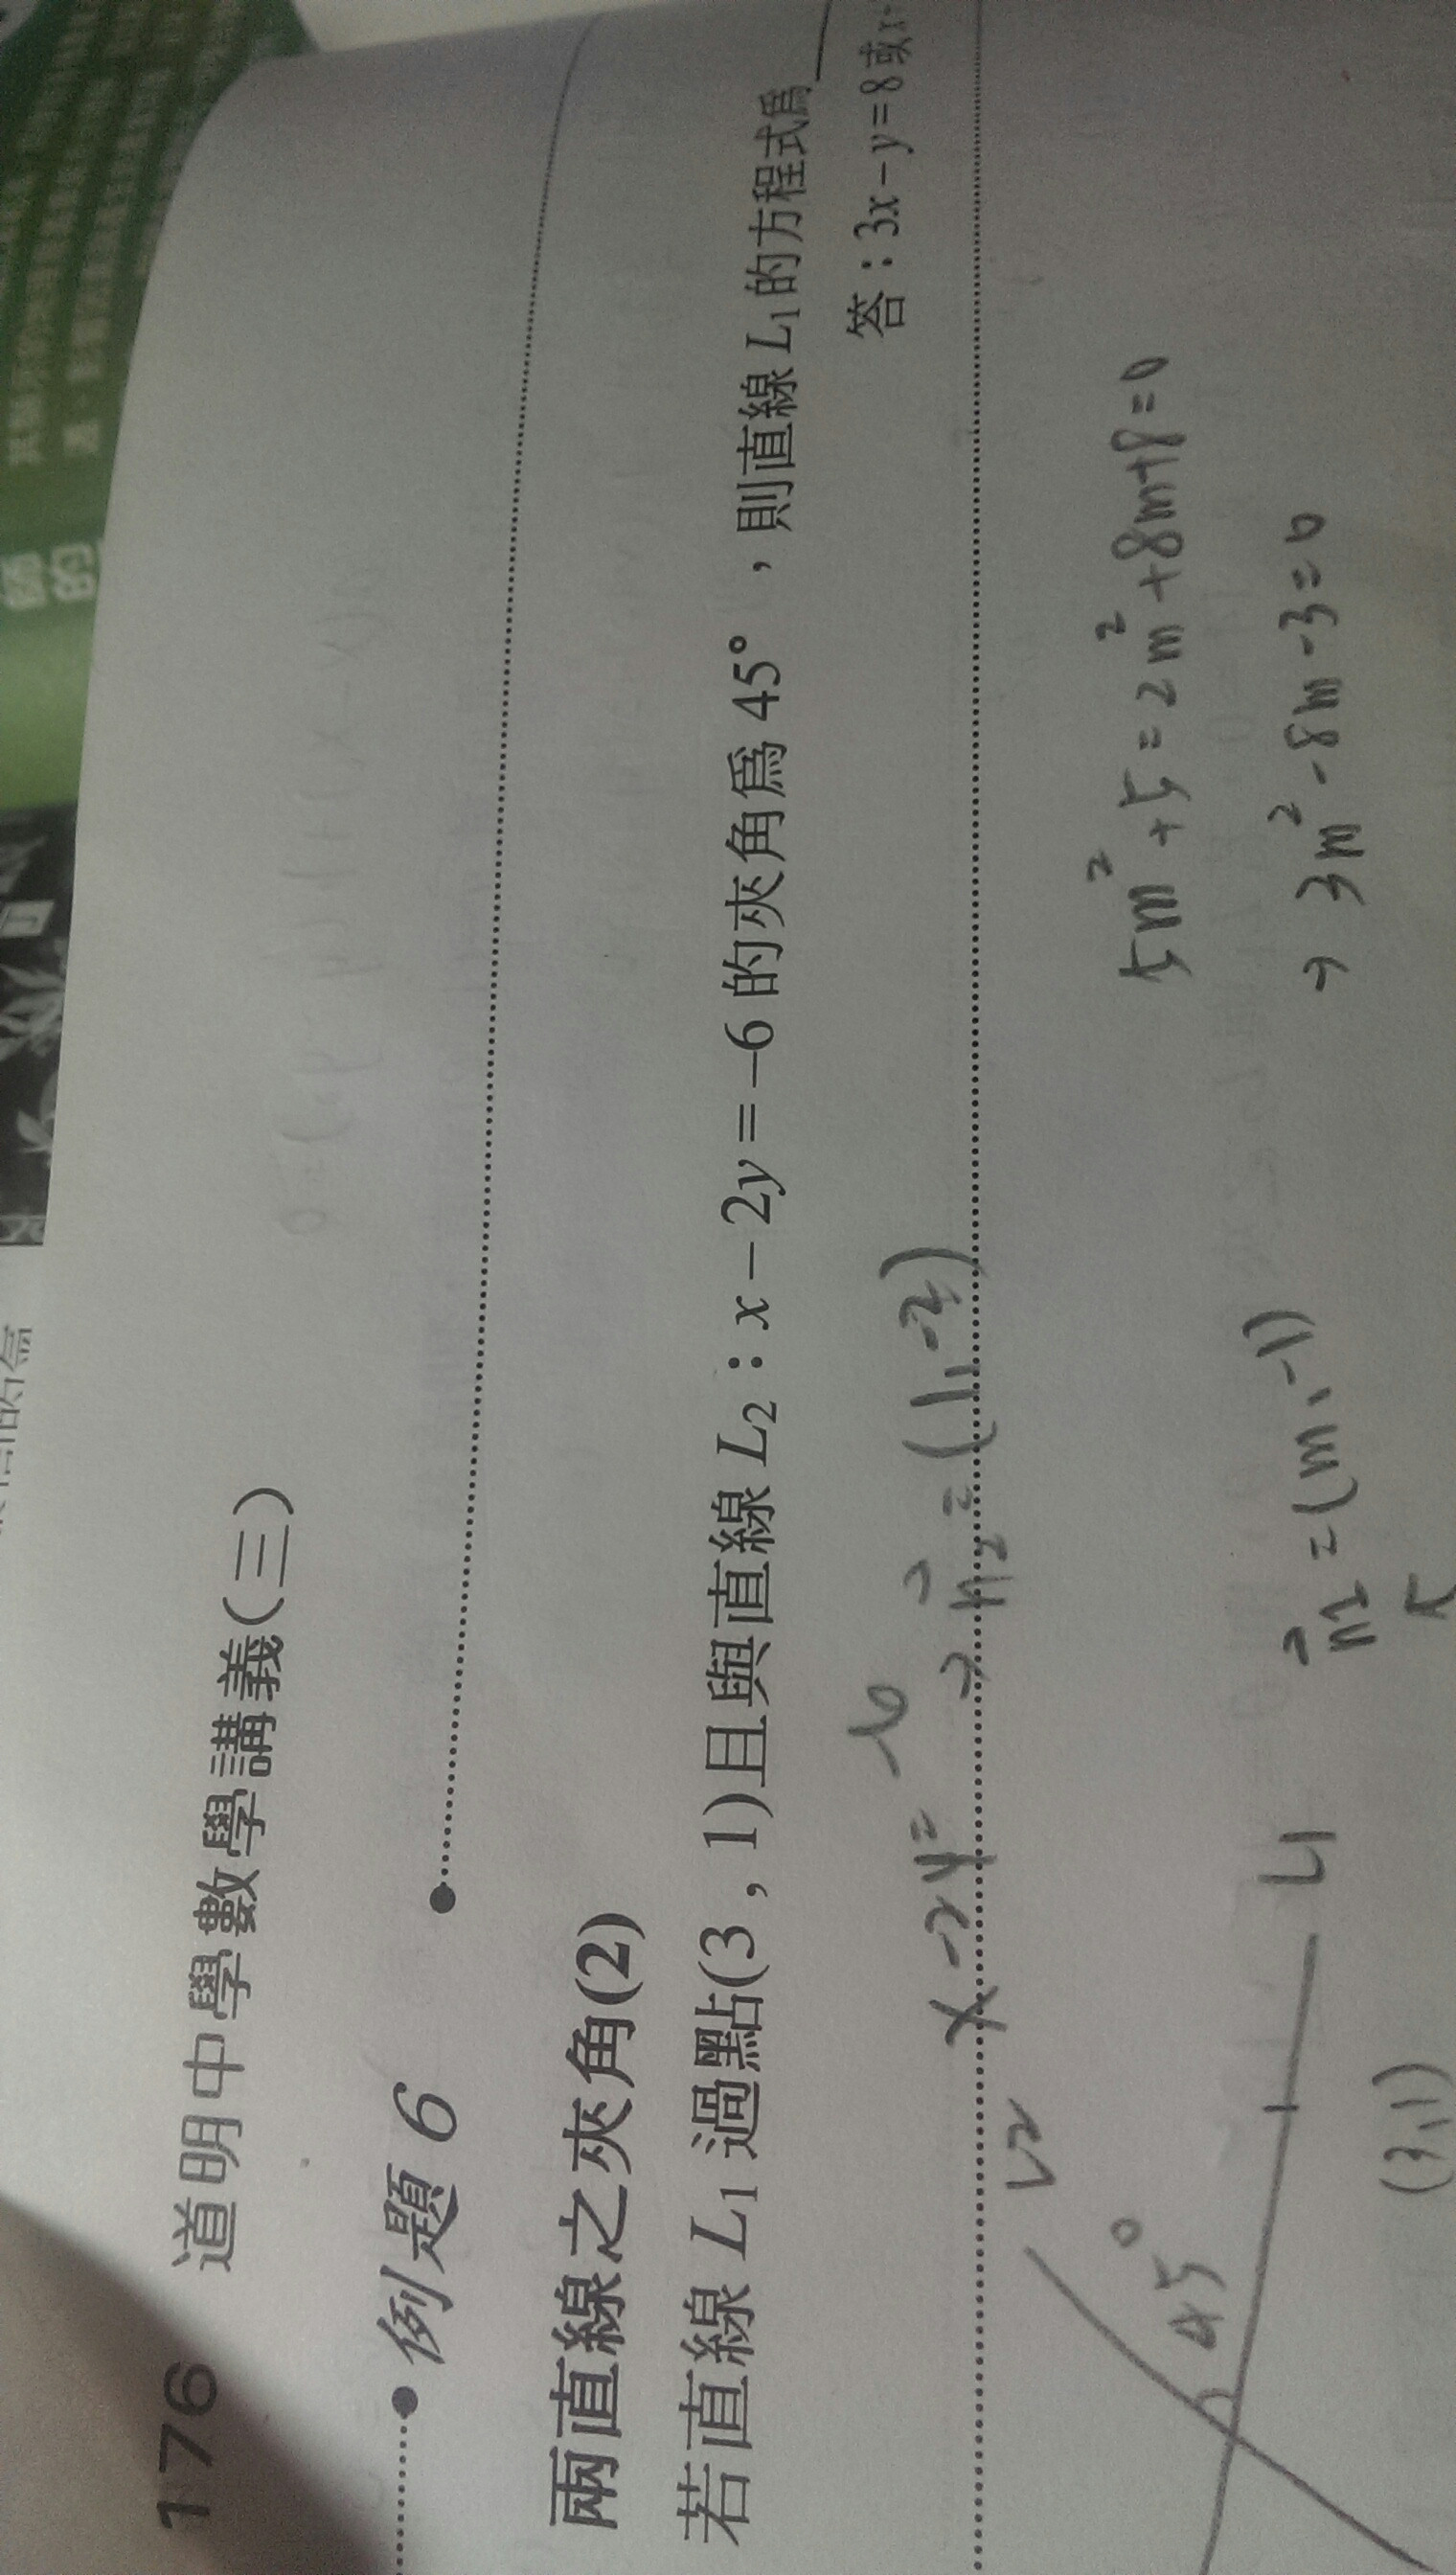 176 道明中學數學講義(三)
例題 6
兩直線之夾角(2)
若直線 L₁ 過點(3 , 1)且與直線 L₂ : x − 2y = −6 的夾角爲 45° ，則直線 L₁ 的方程式爲
答 : 3x − y = 8 或 x+
x-2y=-6 → n₂ = (1,-2)
L2
45°
L1
(3,1)
n₁ = (m,-1)
5m²+5=2m²+8m+8=0
→ 3m²-8m-3=0